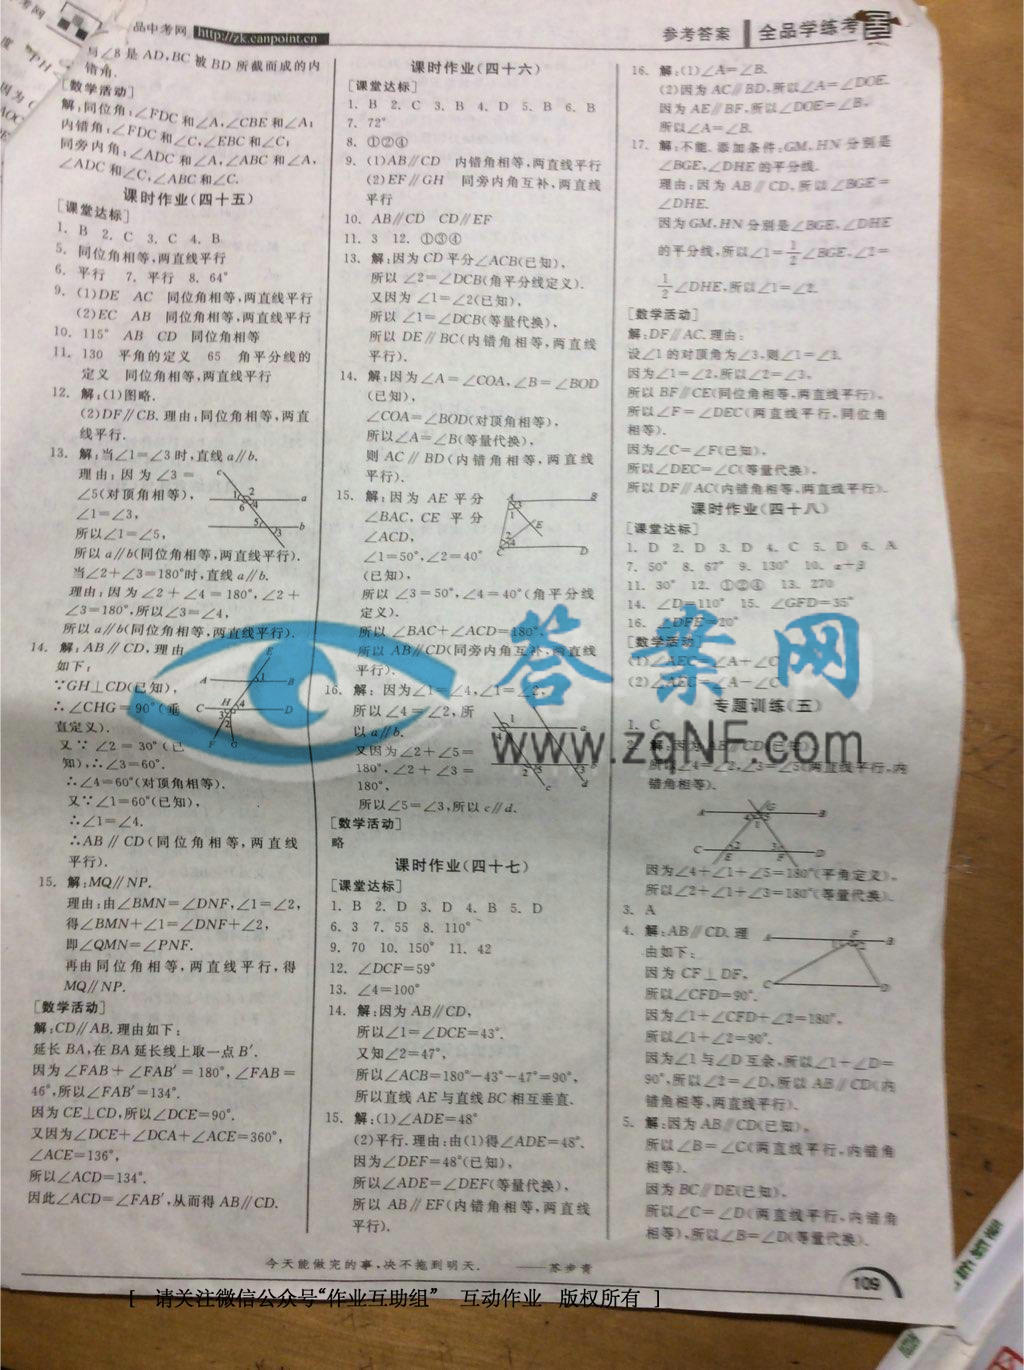 品中考网 http://zk.canpoint.cn
参考答案 全品学练考
与∠8是AD,BC被BD所截而成的内
错角.
[数学活动]
解:同位角:∠FDC和∠A,∠CBE和∠A;
内错角:∠FDC和∠C,∠EBC和∠C;
同旁内角:∠ADC和∠A,∠ABC和∠A,
∠ADC和∠C,∠ABC和∠C.
课时作业(四十五)
[课堂达标]
1. B 2. C 3. C 4. B
5. 同位角相等,两直线平行
6. 平行 7. 平行 8. 64°
9. (1)DE AC 同位角相等,两直线平行
(2)EC AB 同位角相等,两直线平行
10. 115° AB CD 同位角相等
11. 130 平角的定义 65 角平分线的
定义 同位角相等,两直线平行
12. 解:(1)图略.
(2)DF∥CB.理由:同位角相等,两直
线平行.
13. 解:当∠1=∠3时,直线a∥b.
理由:因为∠3=
∠5(对顶角相等),
∠1=∠3,
所以∠1=∠5,
所以a∥b(同位角相等,两直线平行).
当∠2+∠3=180°时,直线a∥b.
理由:因为∠2+∠4=180°,∠2+
∠3=180°,所以∠3=∠4,
所以a∥b(同位角相等,两直线平行).
14. 解:AB∥CD,理由
如下:
∵GH⊥CD(已知),
∴∠CHG=90°(垂
直定义).
又∵∠2=30°(已
知),∴∠3=60°.
∴∠4=60°(对顶角相等).
又∵∠1=60°(已知),
∴∠1=∠4.
∴AB∥CD(同位角相等,两直线
平行).
15. 解:MQ∥NP.
理由:由∠BMN=∠DNF,∠1=∠2,
得∠BMN+∠1=∠DNF+∠2,
即∠QMN=∠PNF.
再由同位角相等,两直线平行,得
MQ∥NP.
[数学活动]
解:CD∥AB.理由如下:
延长BA,在BA延长线上取一点B′.
因为∠FAB+∠FAB′=180°,∠FAB=
46°,所以∠FAB′=134°.
因为CE⊥CD,所以∠DCE=90°.
又因为∠DCE+∠DCA+∠ACE=360°,
∠ACE=136°,
所以∠ACD=134°.
因此∠ACD=∠FAB′,从而得AB∥CD.
课时作业(四十六)
[课堂达标]
1. B 2. C 3. B 4. D 5. B 6. B
7. 72°
8. ①②④
9. (1)AB∥CD 内错角相等,两直线平行
(2)EF∥GH 同旁内角互补,两直线
平行
10. AB∥CD CD∥EF
11. 3 12. ①③④
13. 解:因为CD平分∠ACB(已知),
所以∠2=∠DCB(角平分线定义).
又因为∠1=∠2(已知),
所以∠1=∠DCB(等量代换),
所以DE∥BC(内错角相等,两直线
平行).
14. 解:因为∠A=∠COA,∠B=∠BOD
(已知),
∠COA=∠BOD(对顶角相等),
所以∠A=∠B(等量代换),
则AC∥BD(内错角相等,两直线
平行).
15. 解:因为AE平分
∠BAC,CE平分
∠ACD,
∠1=50°,∠2=40°
(已知),
所以∠3=50°,∠4=40°(角平分线
定义).
所以∠BAC+∠ACD=180°,
所以AB∥CD(同旁内角互补,两直线
平行).
16. 解:因为∠1=∠4,∠1=∠2,
所以∠4=∠2,所
以a∥b.
又因为∠2+∠5=
180°,∠2+∠3=
180°,
所以∠5=∠3,所以c∥d.
[数学活动]
略
课时作业(四十七)
[课堂达标]
1. B 2. D 3. D 4. B 5. D
6. 3 7. 55 8. 110°
9. 70 10. 150° 11. 42
12. ∠DCF=59°
13. ∠4=100°
14. 解:因为AB∥CD,
所以∠1=∠DCE=43°.
又知∠2=47°,
所以∠ACB=180°-43°-47°=90°,
所以直线AE与直线BC相互垂直.
15. 解:(1)∠ADE=48°
(2)平行.理由:由(1)得∠ADE=48°.
因为∠DEF=48°(已知),
所以∠ADE=∠DEF(等量代换),
所以AB∥EF(内错角相等,两直线
平行).
16. 解:(1)∠A=∠B.
(2)因为AC∥BD,所以∠A=∠DOE.
因为AE∥BF,所以∠DOE=∠B,
所以∠A=∠B.
17. 解:不能.添加条件:GM,HN分别是
∠BGE,∠DHE的平分线.
理由:因为AB∥CD,所以∠BGE=
∠DHE.
因为GM,HN分别是∠BGE,∠DHE
的平分线,所以∠1=1/2∠BGE,∠2=
1/2∠DHE,所以∠1=∠2.
[数学活动]
解:DF∥AC.理由:
设∠1的对顶角为∠3,则∠1=∠3.
因为∠1=∠2,所以∠2=∠3,
所以BF∥CE(同位角相等,两直线平行),
所以∠F=∠DEC(两直线平行,同位角
相等).
因为∠C=∠F(已知),
所以∠DEC=∠C(等量代换),
所以DF∥AC(内错角相等,两直线平行).
课时作业(四十八)
[课堂达标]
1. D 2. D 3. D 4. C 5. D 6. A
7. 50° 8. 67° 9. 130° 10. α+β
11. 30° 12. ①②④ 13. 270
14. ∠D=110° 15. ∠GFD=35°
16. ∠DFE=20°
[数学活动]
(1)∠AEC=∠A+∠C
(2)∠AEC=∠A-∠C
专题训练(五)
1. C
2. 解:因为AB∥CD(已知),
所以∠4=∠2,∠3=∠5(两直线平行,内
错角相等).
因为∠4+∠1+∠5=180°(平角定义),
所以∠2+∠1+∠3=180°(等量代换).
3. A
4. 解:AB∥CD.理
由如下:
因为CF⊥DF,
所以∠CFD=90°.
因为∠1+∠CFD+∠2=180°,
所以∠1+∠2=90°.
因为∠1与∠D互余,所以∠1+∠D=
90°,所以∠2=∠D,所以AB∥CD(内
错角相等,两直线平行).
5. 解:因为AB∥CD(已知),
所以∠B=∠C(两直线平行,内错角
相等).
因为BC∥DE(已知),
所以∠C=∠D(两直线平行,内错角
相等),所以∠B=∠D(等量代换).
答案网
www.zqNF.com
今天能做完的事,决不拖到明天. ——苏步青
109
[ 请关注微信公众号“作业互助组” 互动作业 版权所有 ]